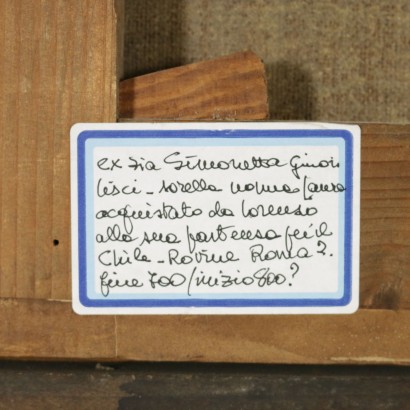 ex zia Simonetta Ginori
Lisci - sorella nonna Laura
acquistato da Lorenzo
alla sua partenza per il
Chile - Rovine Roma ?.
fine 700/inizio 800?